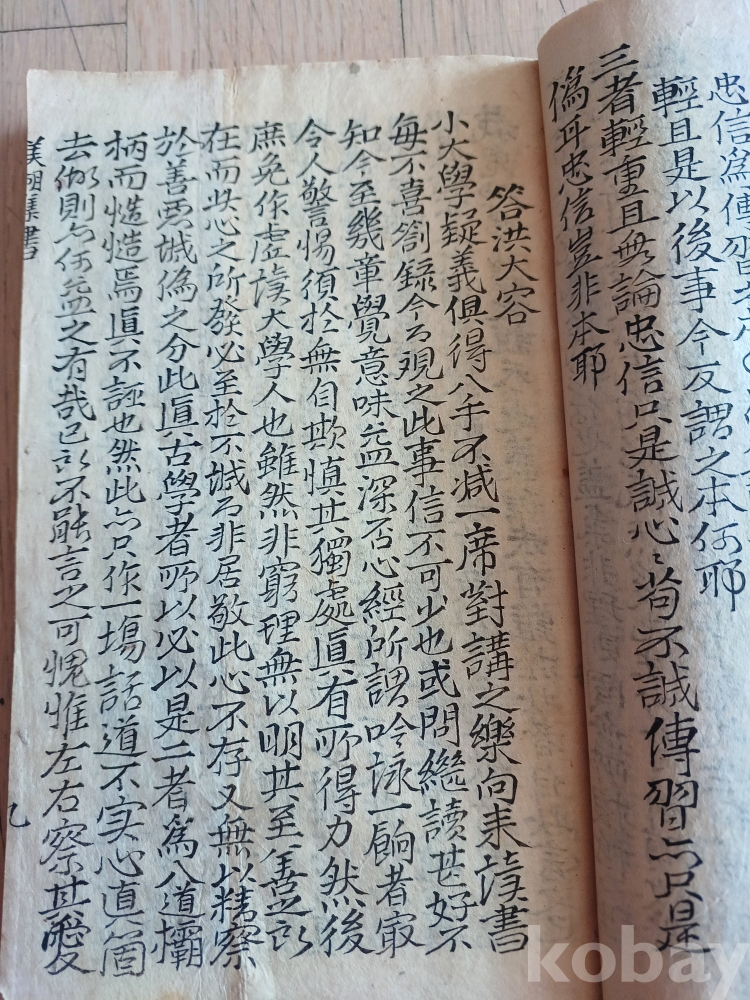 忠信爲傳習
輕且是以後事今反謂之本何耶
三者輕重且無論忠信只是誠心〻苟不誠傳習亦只是
僞耳忠信豈非本耶
答洪大容
小大學疑義俱得入手不减一席對講之樂向來讀書
每不喜劄錄今而覌之此事信不可少也或問繼讀甚好不
知今至幾章覺意味益深否心經所謂吟詠一餉者㝡
令人警惕須於無自欺愼其獨處眞有所得力然後
庶免作虛讀大學人也雖然非窮理無以明其至善之所
在而此心之所發必至於不誠而非居敬此心不存又無以精察
於善惡誠僞之分此眞古學者所以必以是二者爲入道欛
柄而慥慥焉眞不誣也然此亦只作一場話道不實心真箇
去做則亦何益之有哉已所不能言之可愧惟左右察其愛
渼湖集 書
九
kobay